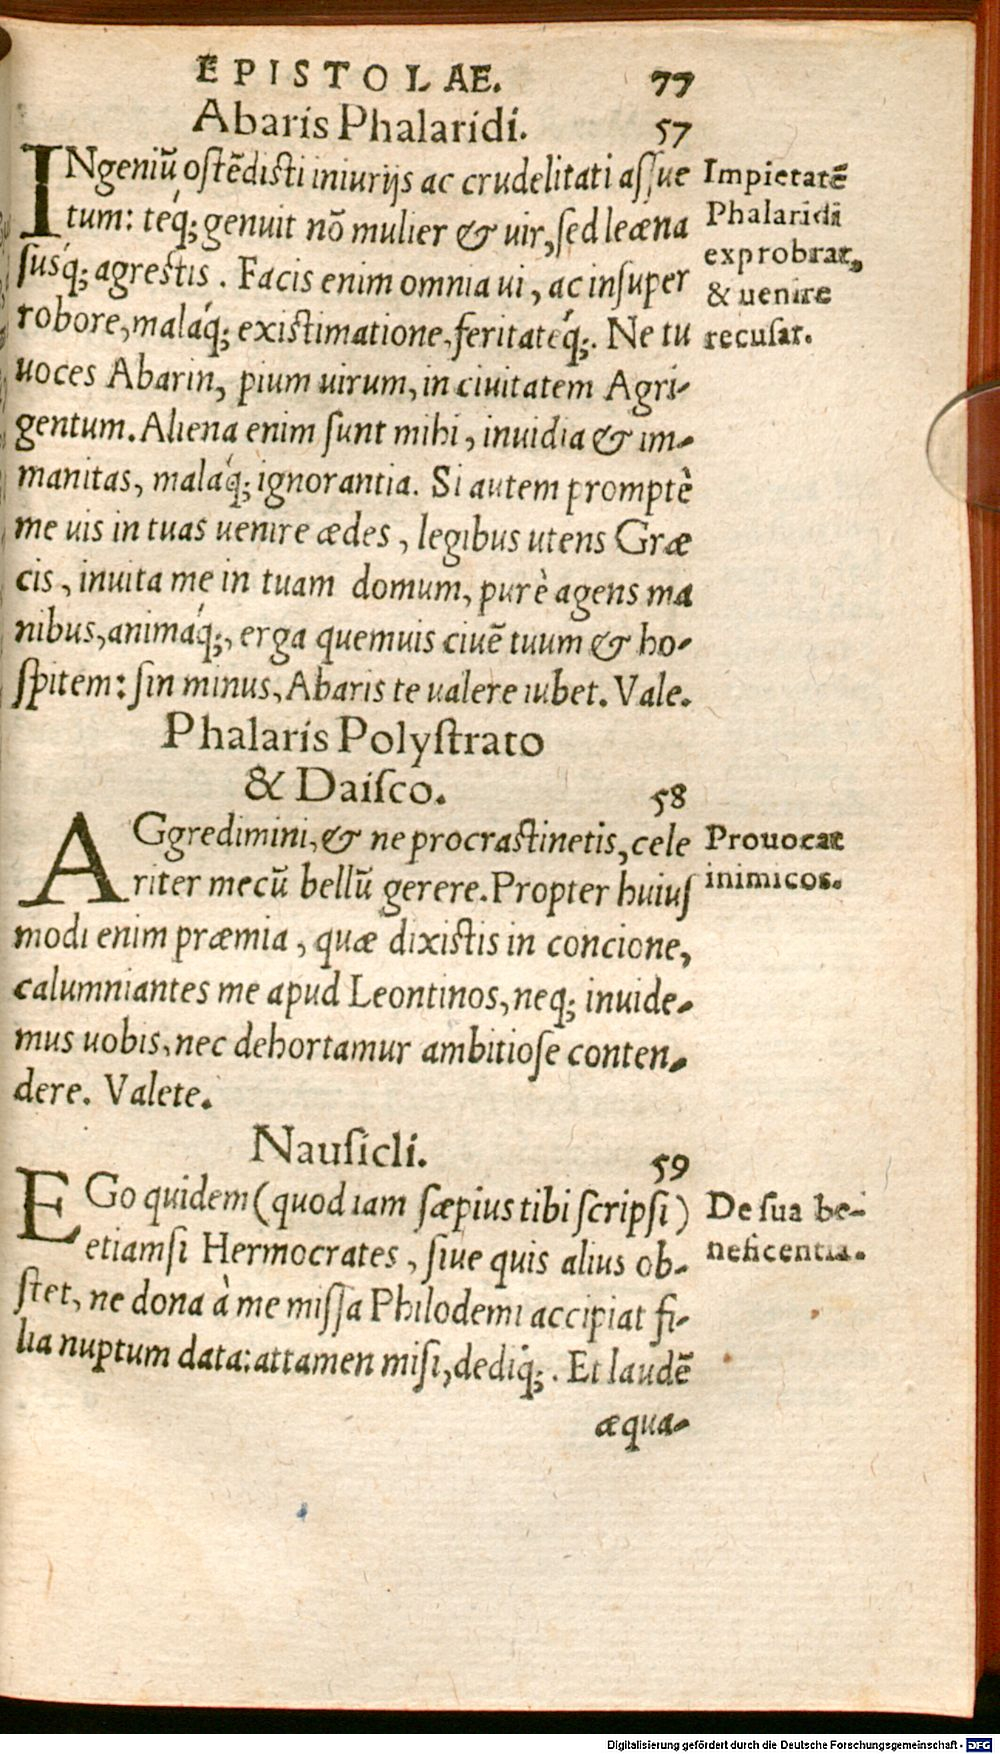 EPISTOLAE. 77
Abaris Phalaridi. 57
INgeniū ostēdisti iniurijs ac crudelitati assue
tum: téq; genuit nō mulier & uir, sed leæna
susq́; agrestis. Facis enim omnia ui, ac insuper
robore, maláq; existimatione, feritatéq;. Ne tu
uoces Abarin, pium uirum, in ciuitatem Agri-
gentum. Aliena enim sunt mihi, inuidia & im-
manitas, maláq; ignorantia. Si autem promptè
me uis in tuas uenire ædes, legibus utens Græ
cis, inuita me in tuam domum, purè agens ma
nibus, animáq;, erga quemuis ciuē tuum & ho-
spitem: sin minus, Abaris te ualere iubet. Vale.
Impietatē
Phalaridi
exprobrat,
& uenire
recusat.
Phalaris Polystrato
& Daisco. 58
AGgredimini, & ne procrastinetis, cele
riter mecū bellū gerere. Propter huius
modi enim præmia, quæ dixistis in concione,
calumniantes me apud Leontinos, neq; inuide-
mus uobis, nec dehortamur ambitiose conten-
dere. Valete.
Prouocat
inimicos.
Nausicli. 59
EGo quidem (quod iam sæpius tibi scripsi)
etiamsi Hermocrates, siue quis alius ob-
stet, ne dona à me missa Philodemi accipiat fi-
lia nuptum data: attamen misi, dediq́;. Et laudē
æqua-
De sua be-
neficentia.
Digitalisierung gefördert durch die Deutsche Forschungsgemeinschaft - DFG